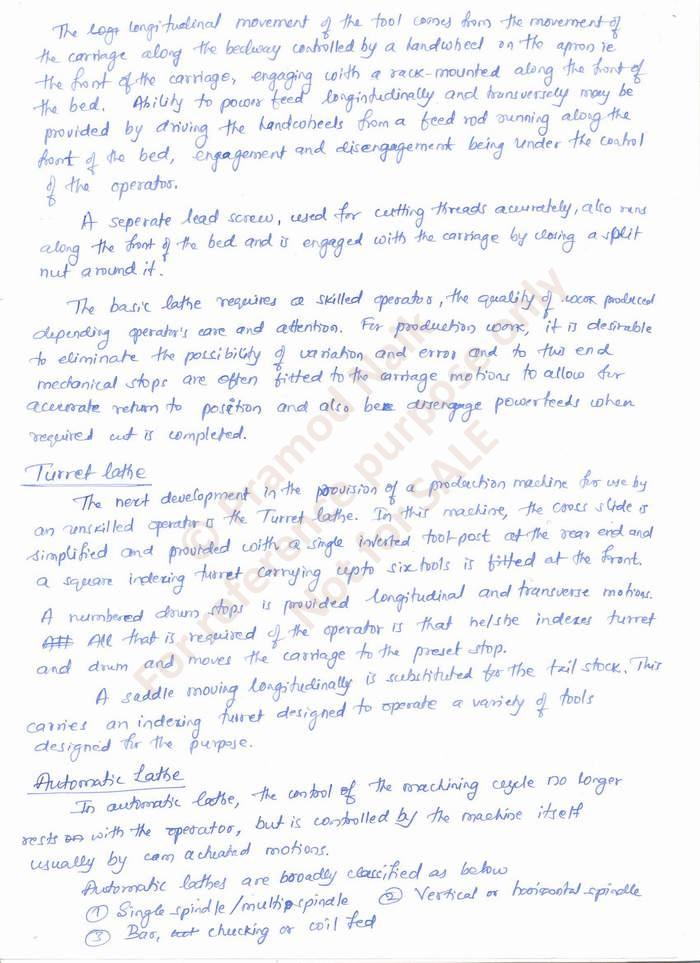 The longitudinal movement of the tool comes from the movement of
the carriage along the bedway controlled by a handwheel on the apron ie
the front of the carriage, engaging with a rack-mounted along the front of
the bed. Ability to power feed longintudinally and transversely may be
provided by driving the handwheels from a feed rod running along the
front of the bed, engagement and disengagement being under the control
of the operator.
A seperate lead screw, used for cutting threads accurately, also runs
along the front of the bed and is engaged with the carriage by closing a split
nut around it.
The basic lathe requires a skilled operator, the quality of work produced
depending operator's care and attention. For production work, it is desirable
to eliminate the possibility of variation and error and to this end
mechanical stops are often fitted to the carriage motions to allow for
accurate return to position and also be disengage powerfeeds when
required cut is completed.
Turret lathe
The next development in the provision of a production machine for use by
an unskilled operator is the Turret lathe. In this machine, the cross slide is
simplified and provided with a single inverted tool-post at the rear end and
a square indexing turret carrying upto six tools is fitted at the front.
A numbered drum stops is provided longitudinal and transverse motions.
All that is required of the operator is that he/she indexes turret
and drum and moves the carriage to the preset stop.
A saddle moving longitudinally is substituted for the tail stock. This
carries an indexing turret designed to operate a variety of tools
designed for the purpose.
Automatic Lathe
In automatic lathe, the control of the machining cycle no longer
rests with the operator, but is controlled by the machine itself
usually by cam actuated motions.
Automatic lathes are broadly classified as below
① Single spindle/multispindle ② Vertical or horizontal spindle
③ Bar, chucking or coil fed
© Pramod Naik
For reference purpose only
Not for SALE